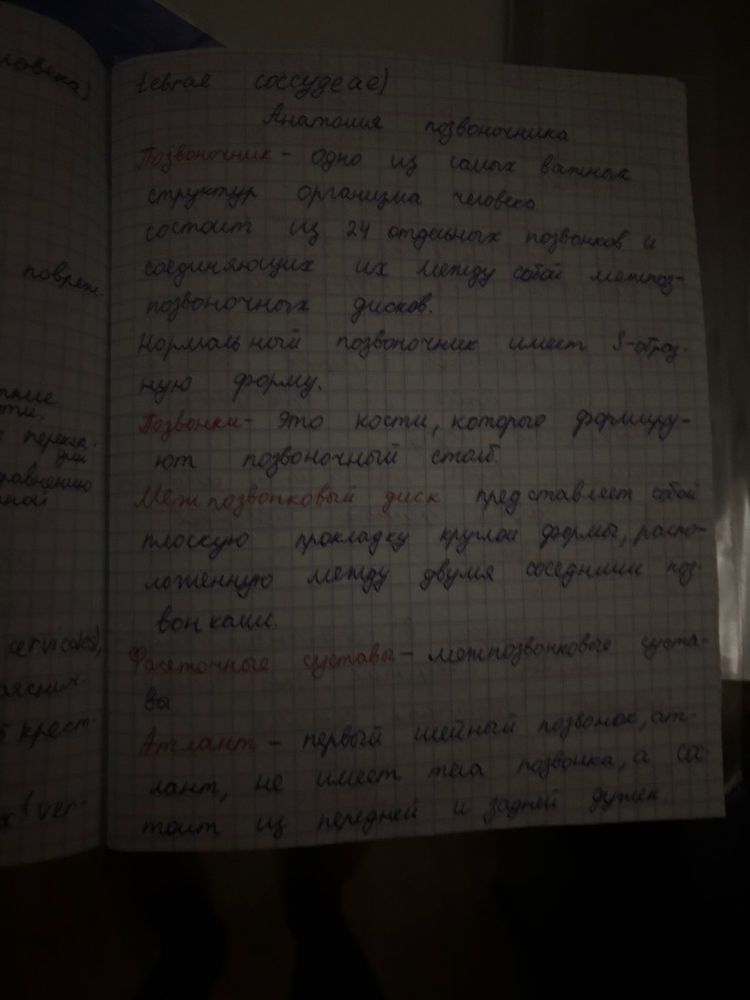 ловека)
tebrae coccygeae)
Анатомия позвоночника
Позвоночник - одно из самых важных
структур организма человека
состоит из 24 отдельных позвонков и
соединяющих их между собой межпоз-
позвоночных дисков.
повреж-
Нормальный позвоночник имеет S-образ-
ную форму.
Позвонки - это кости, которые формиру-
ют позвоночный столб.
сравнению
Межпозвонковый диск представляет собой
плоскую прокладку круглой формы, распо-
ложенную между двумя соседними поз-
вонками.
cervicales),
Фасеточные суставы - межпозвонковые суста-
вы
5 крест-
Атлант - первый шейный позвонок, ат-
лант, не имеет тела позвонка, а со-
(ver-
тоит из передней и задней дужек.